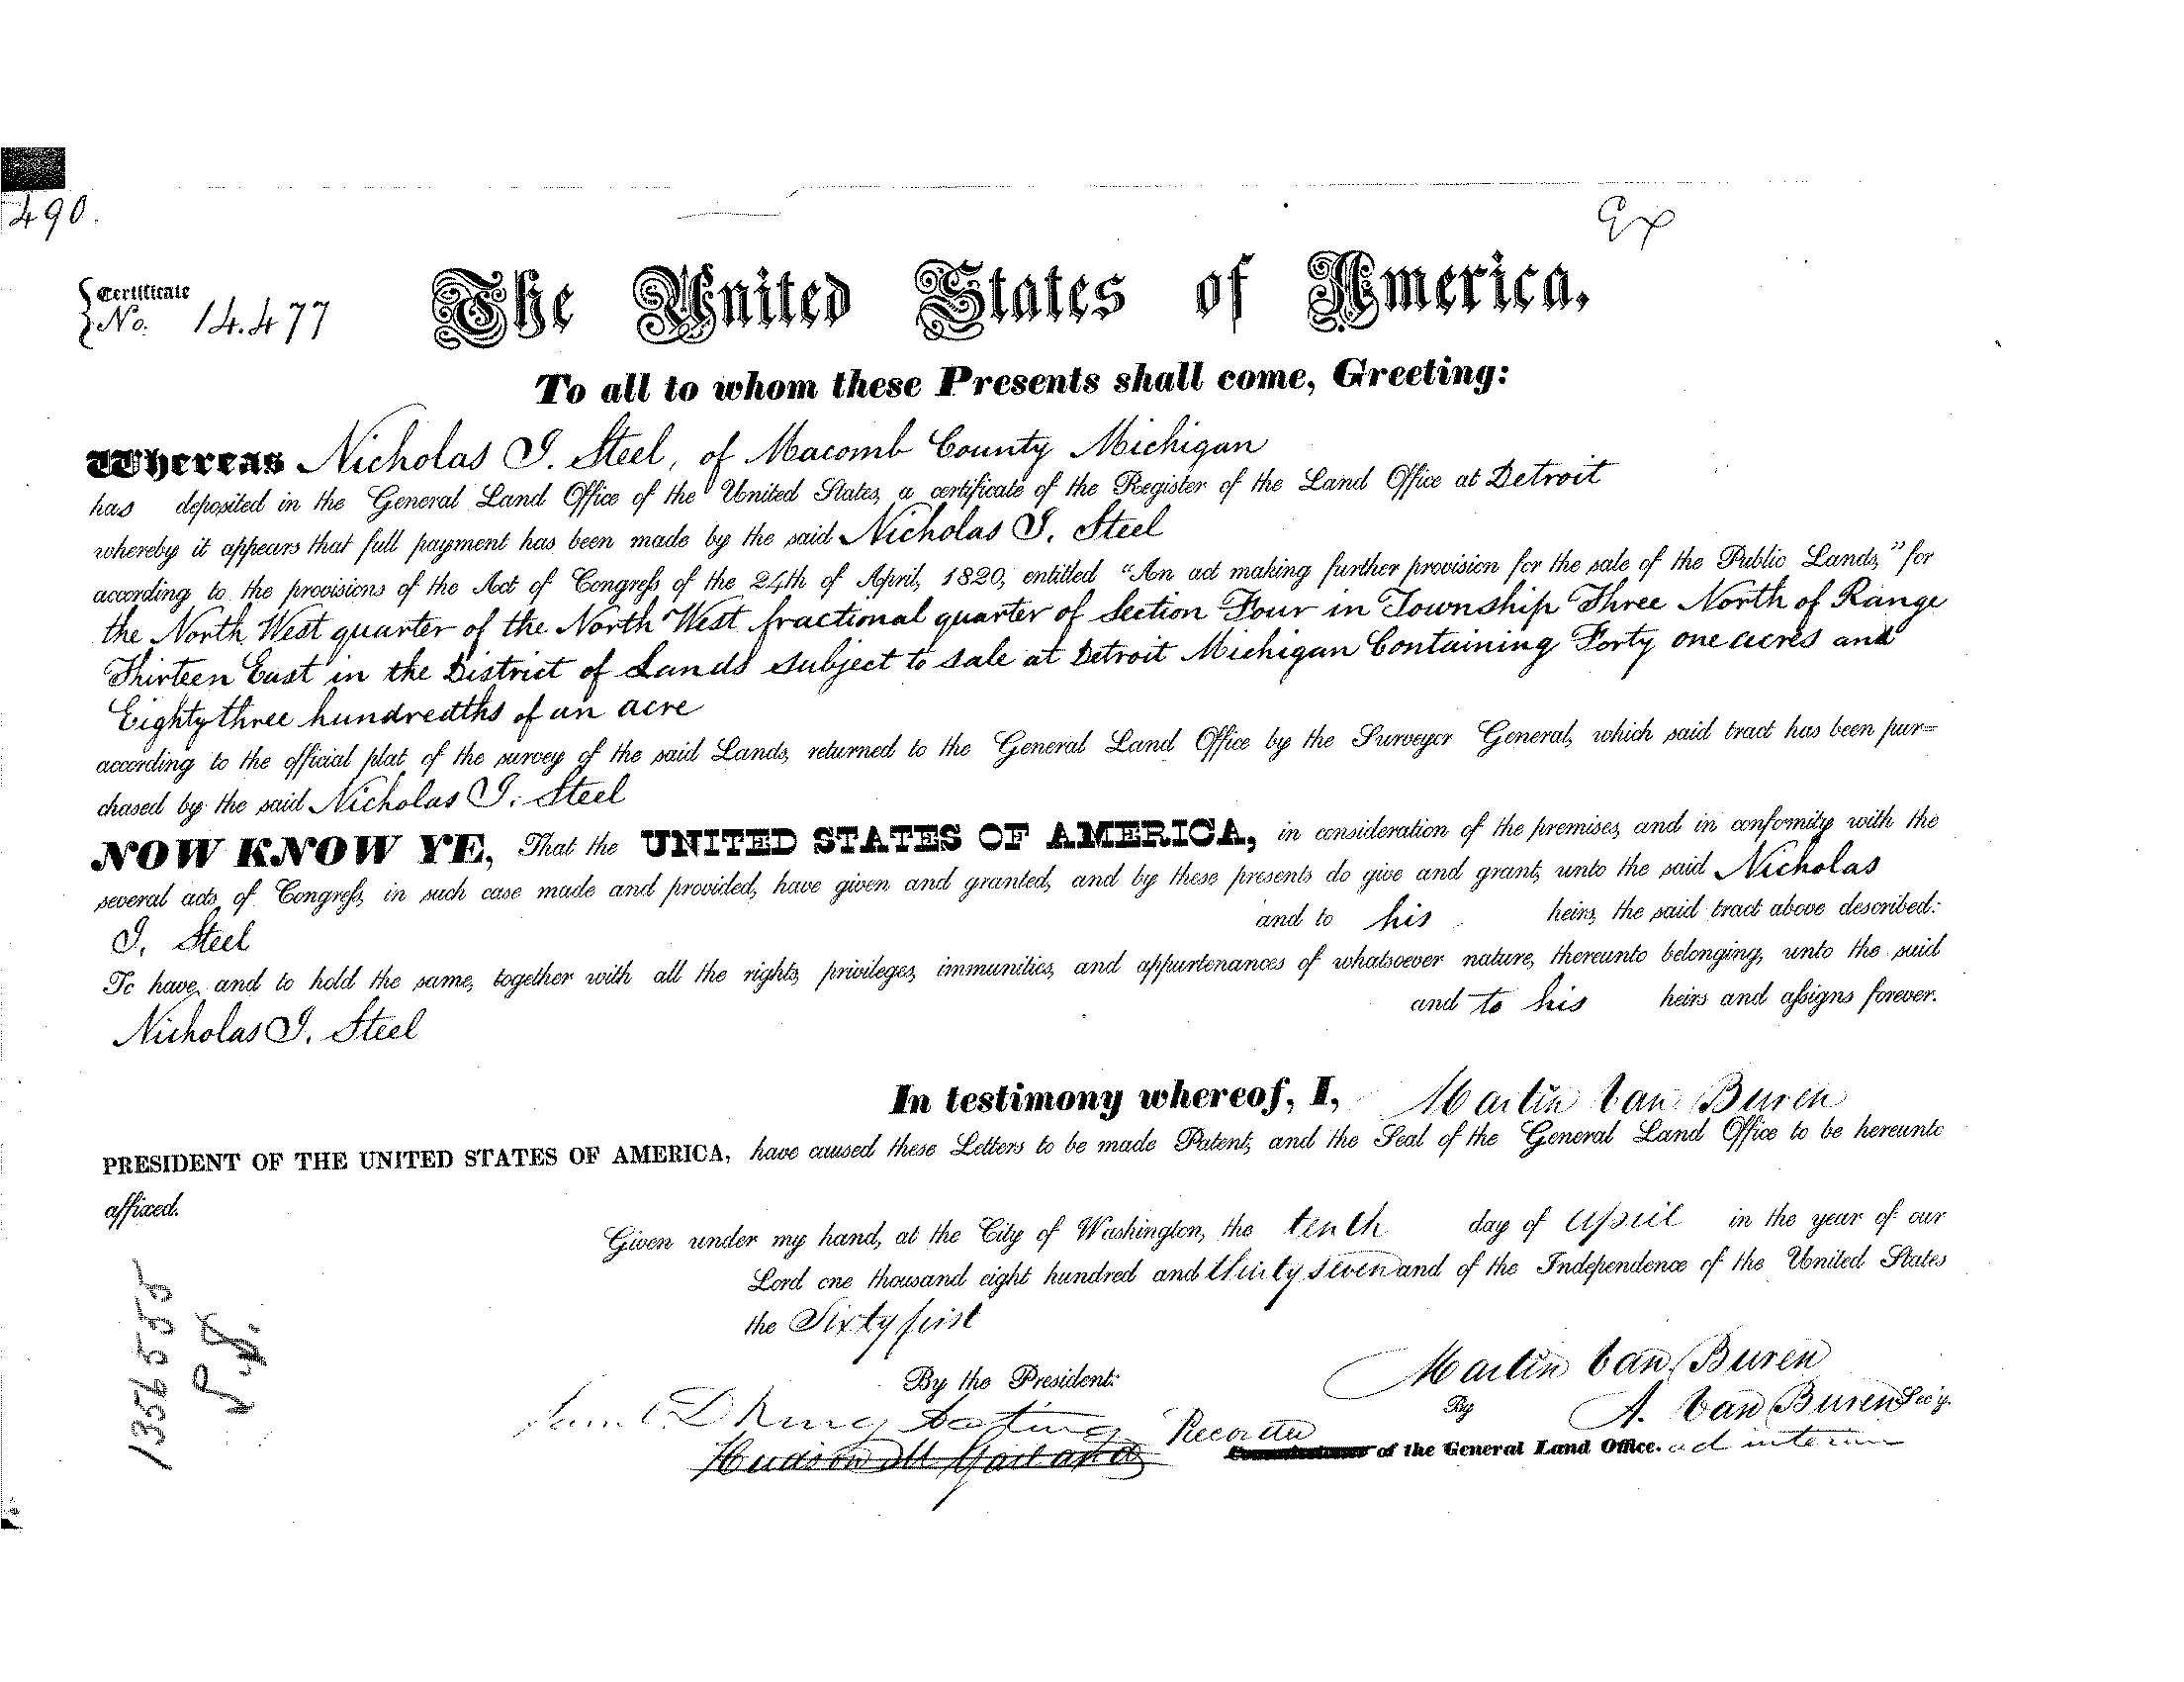 490.
Ex
Certificate
No. 14.477
The United States of America,
To all to whom these Presents shall come, Greeting:
Whereas Nicholas I. Steel, of Macomb County Michigan
has deposited in the General Land Office of the United States, a certificate of the Register of the Land Office at Detroit
whereby it appears that full payment has been made by the said Nicholas I. Steel
according to the provisions of the Act of Congress of the 24th of April, 1820, entitled "An act making further provision for the sale of the Public Lands," for
the North West quarter of the North West fractional quarter of Section Four in Township Three North of Range
Thirteen East in the District of Lands subject to sale at Detroit Michigan Containing Forty one acres and
Eighty three hundredths of an acre
according to the official plat of the survey of the said Lands, returned to the General Land Office by the Surveyor General, which said tract has been pur=
chased by the said Nicholas I. Steel
NOW KNOW YE, That the UNITED STATES OF AMERICA, in consideration of the premises, and in conformity with the
several acts of Congress, in such case made and provided, have given and granted, and by these presents do give and grant, unto the said Nicholas
I. Steel and to his heirs, the said tract above described:
To have and to hold the same, together with all the rights, privileges, immunities, and appurtenances of whatsoever nature, thereunto belonging, unto the said
Nicholas I. Steel and to his heirs and assigns forever.
In testimony whereof, I, Martin Van Buren
PRESIDENT OF THE UNITED STATES OF AMERICA, have caused these Letters to be made Patent, and the Seal of the General Land Office to be hereunto
affixed.
Given under my hand, at the City of Washington, the tenth day of April in the year of our
Lord one thousand eight hundred and thirty seven and of the Independence of the United States
the Sixty first
By the President: Martin Van Buren
By A. Van Buren Sec'y.
Sam D King acting Recorder of the General Land Office. ad interim
Hudson M Garland
1356555